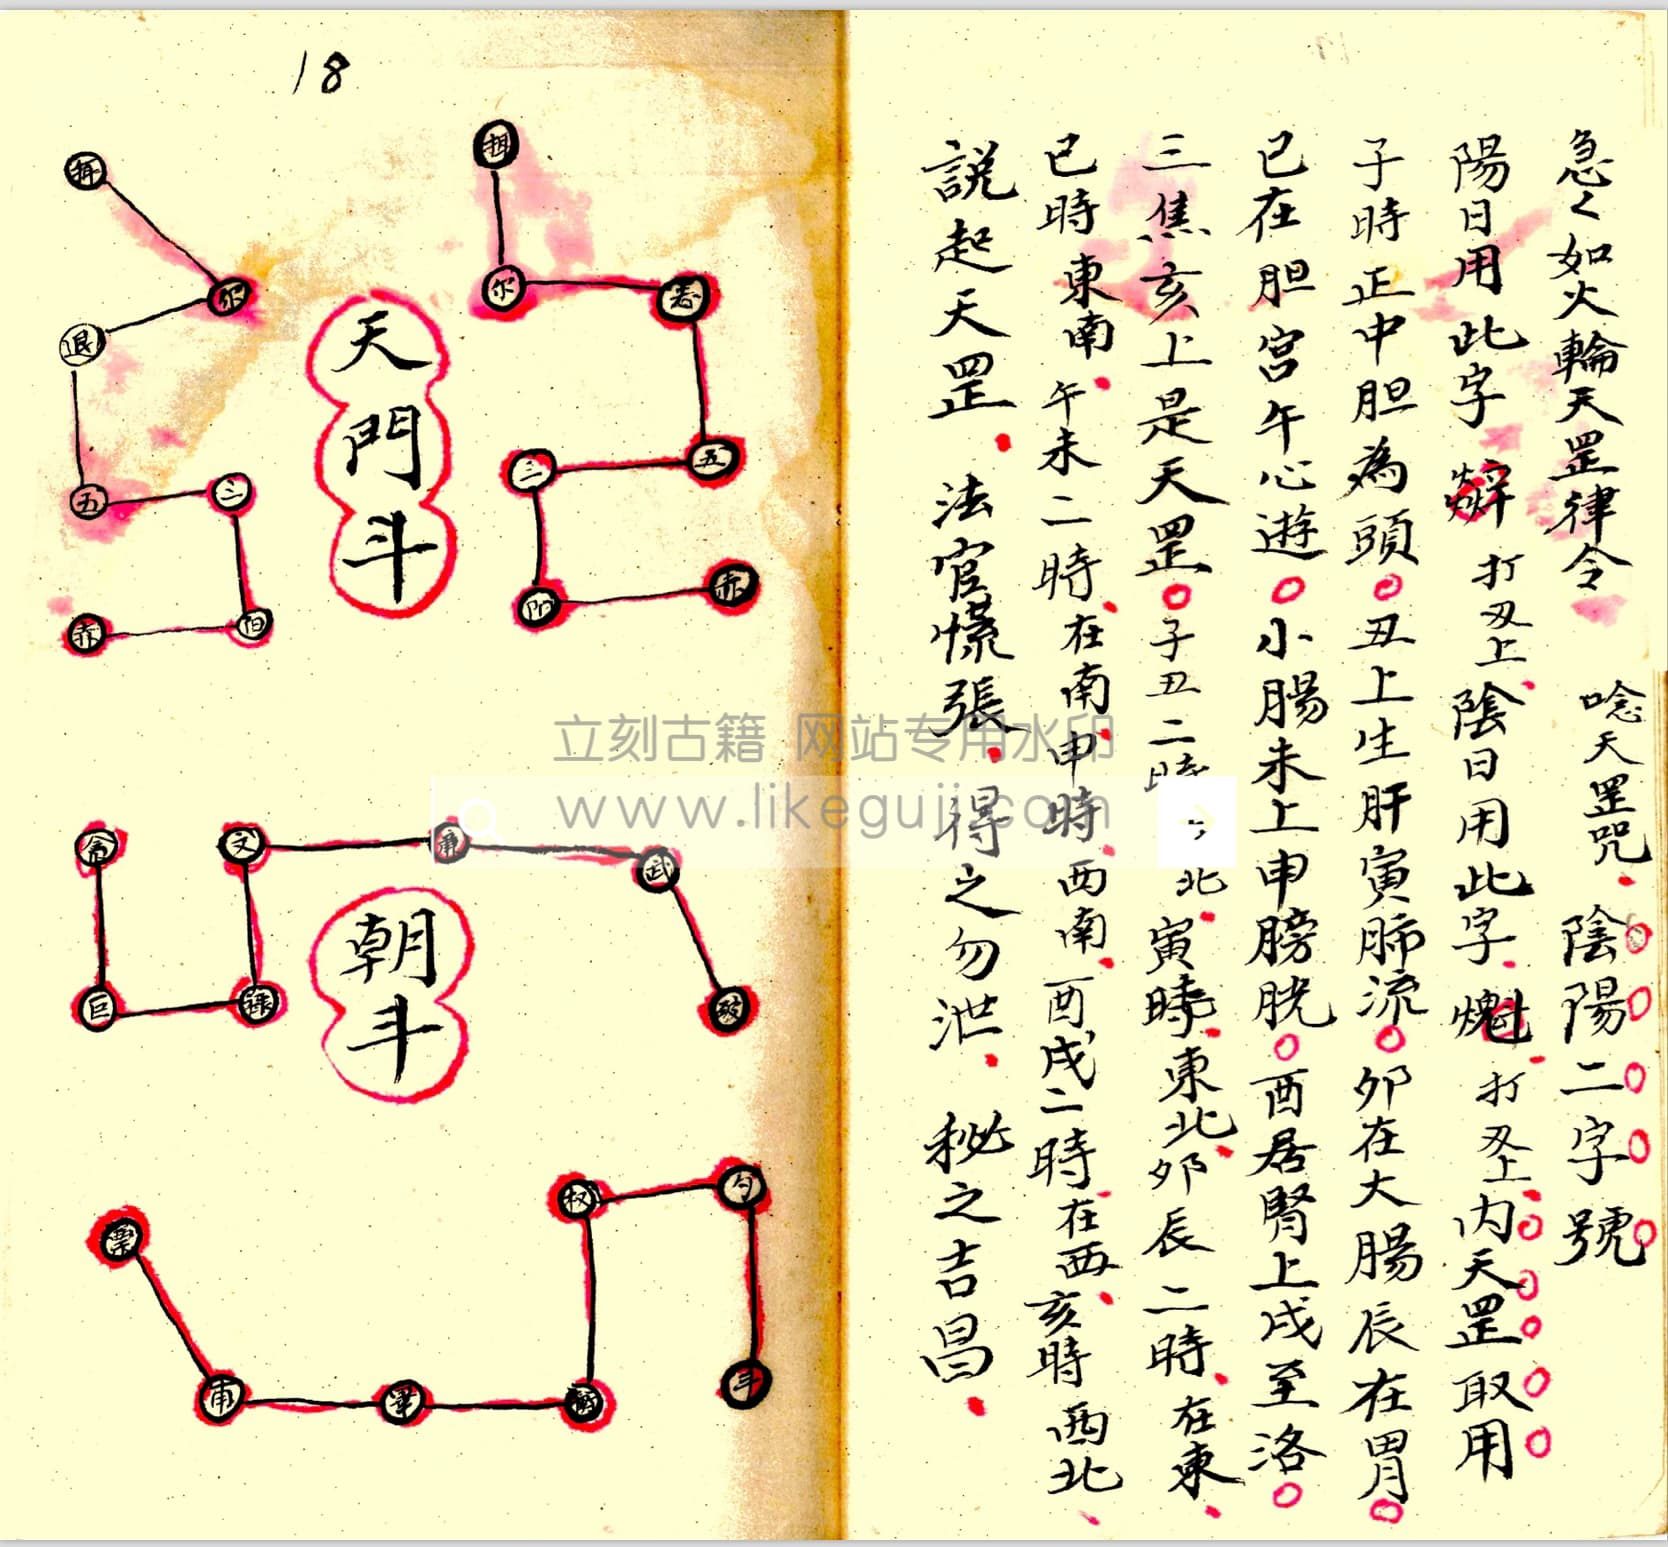 急々如火輪天罡律令 唸天罡咒 陰陽二字號
陽日用此字 打丑上 陰日用此字 魁 打丑上 内天罡取用
子時正中胆為頭 丑上生肝寅肺流 卯在大腸辰在胃
已在胆宮午心遊 小腸未上申膀胱 酉居腎上戌至洛
三焦亥上是天罡 子丑二時 北 寅時東北 卯辰二時在東
已時東南 午未二時在南 申時西南 酉戌二時在西 亥時西北
説起天罡 法官慌張 得之勿泄 秘之吉昌
18
天門斗
尔
五
三
赤
尔
退
五
三
赤
朝斗
貪
巨
祿
文
廉
武
破
斗
勺
权
畢
甫
票
立刻古籍 网站专用水印
www.likeguji.com